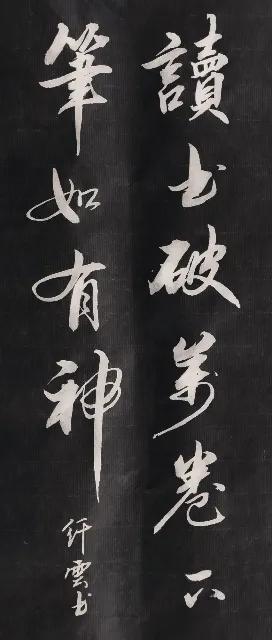 讀书破萬卷下
筆如有神
纤雲书